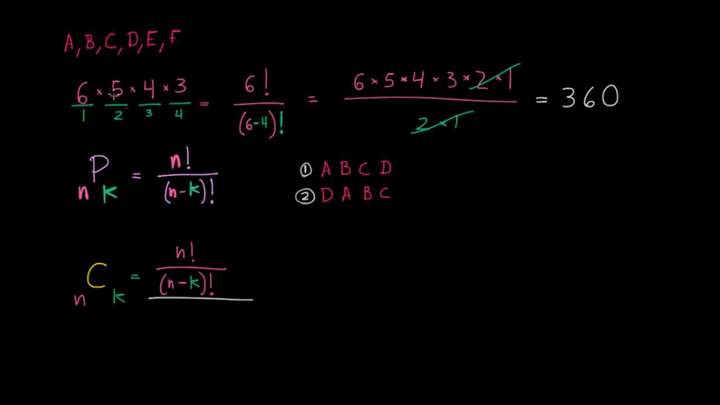 A, B, C, D, E, F
6 × 5 × 4 × 3 = 6! / (6-4)! = 6 × 5 × 4 × 3 × 2 × 1 / 2 × 1 = 360
1 2 3 4
nPk = n! / (n-k)!
① A B C D
② D A B C
nCk = n! / (n-k)!